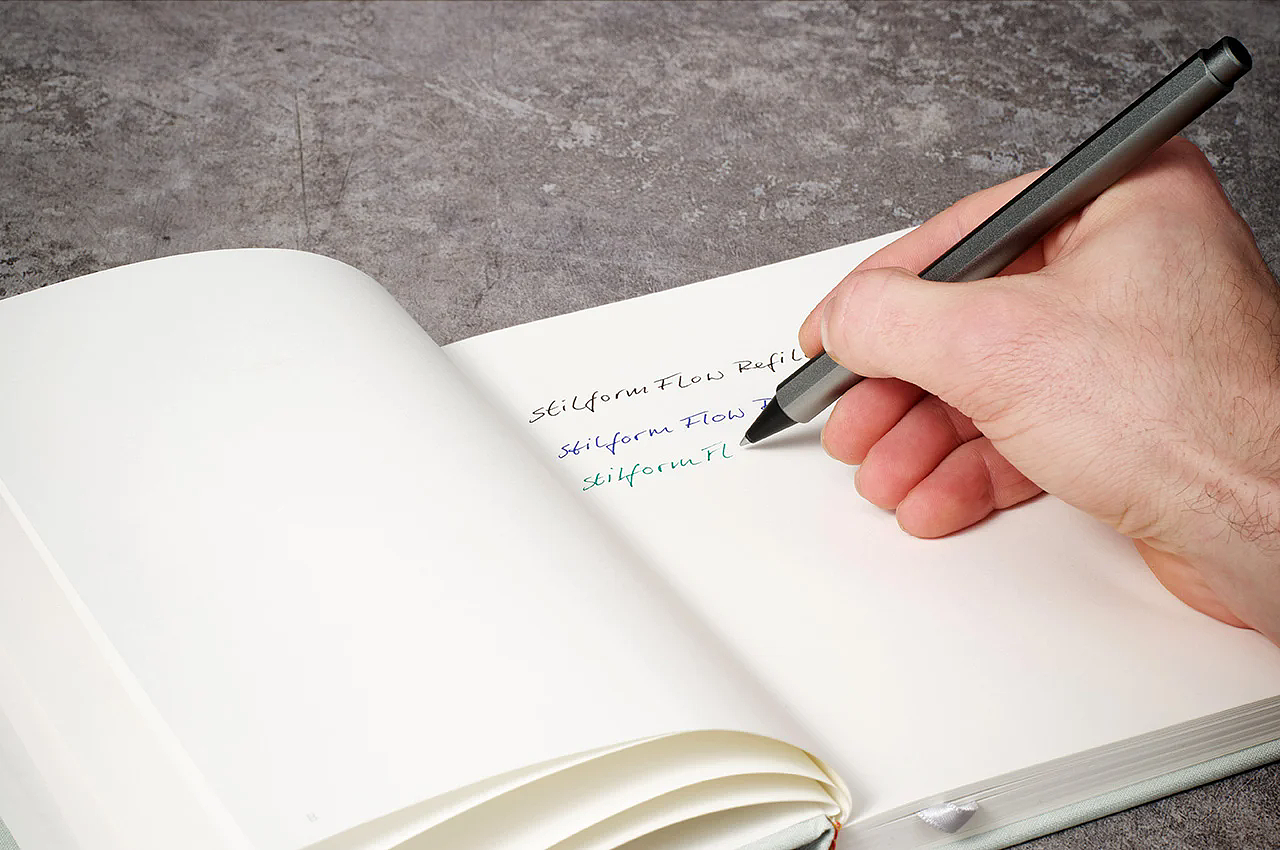 stilform Flow Refill
stilform Flow
stilform Fl